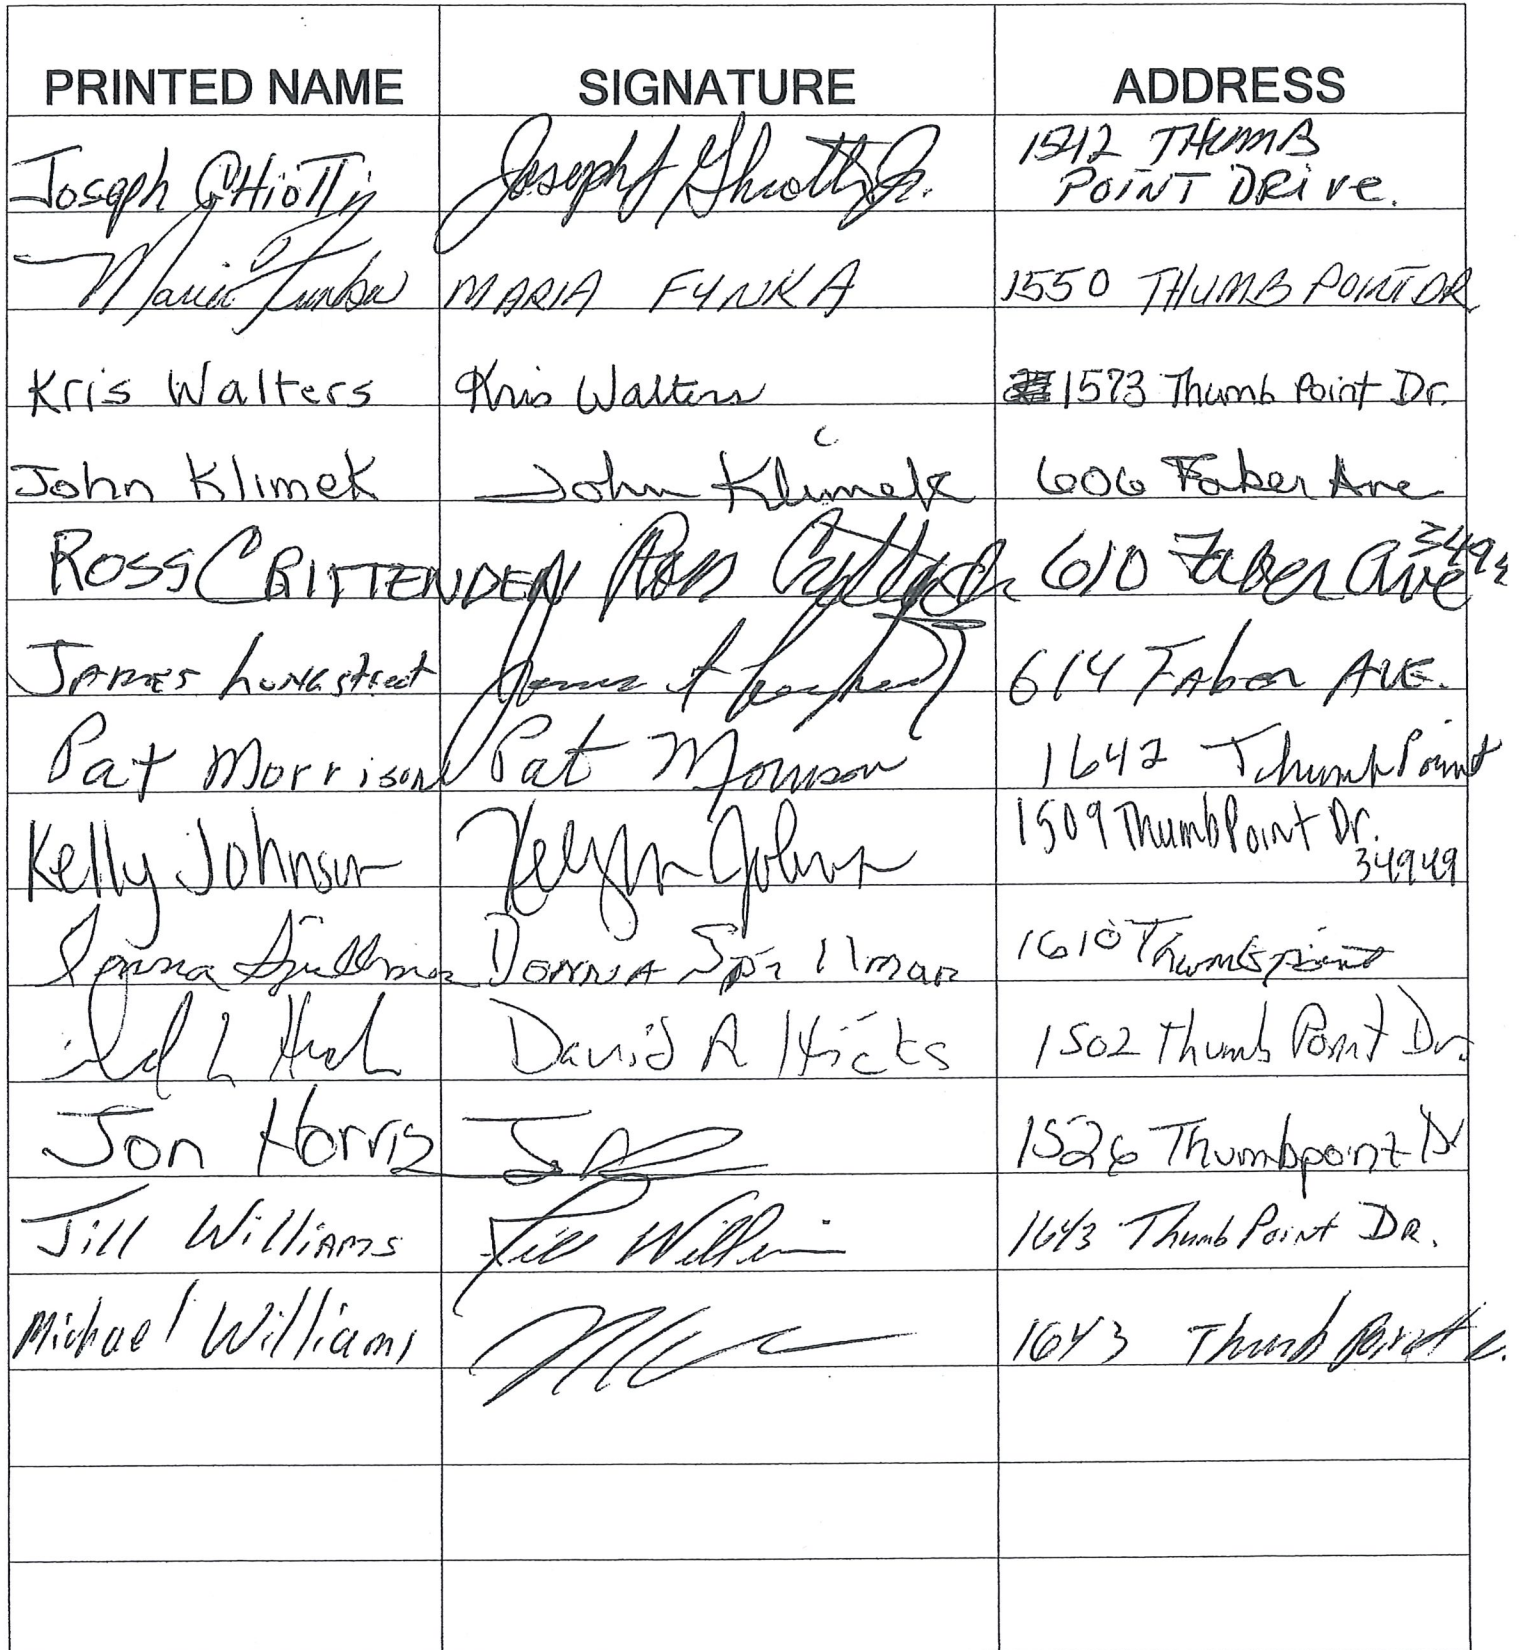 PRINTED NAME SIGNATURE ADDRESS
Joseph GHiotti Joseph J Ghiotti Jr. 1512 THUMB
POINT DRive.
Maria Fynka MARIA FYNKA 1550 THUMB POINT DR
Kris Walters Kris Walters 1573 Thumb Point Dr.
John Klimek John Klimek 606 Faber Ave
ROSS CRITTENDEN Ross Crittenden 610 Faber Ave 3494
JAMES Longstreet James Longstreet 614 Faber AVE.
Pat Morrison Pat Morrison 1642 Thumb Point
Kelly Johnson Johnson 1509 Thumb Point Dr.
34949
Donna Spillman DONNA Spillman 1610 Thumbpoint
Hick David A Hicks 1502 Thumb Point Dr.
Jon Horris 1526 Thumbpoint Dr
Jill Williams Jill William 1643 Thumb Point DR.
Michael Williams 1643 Thumb Point